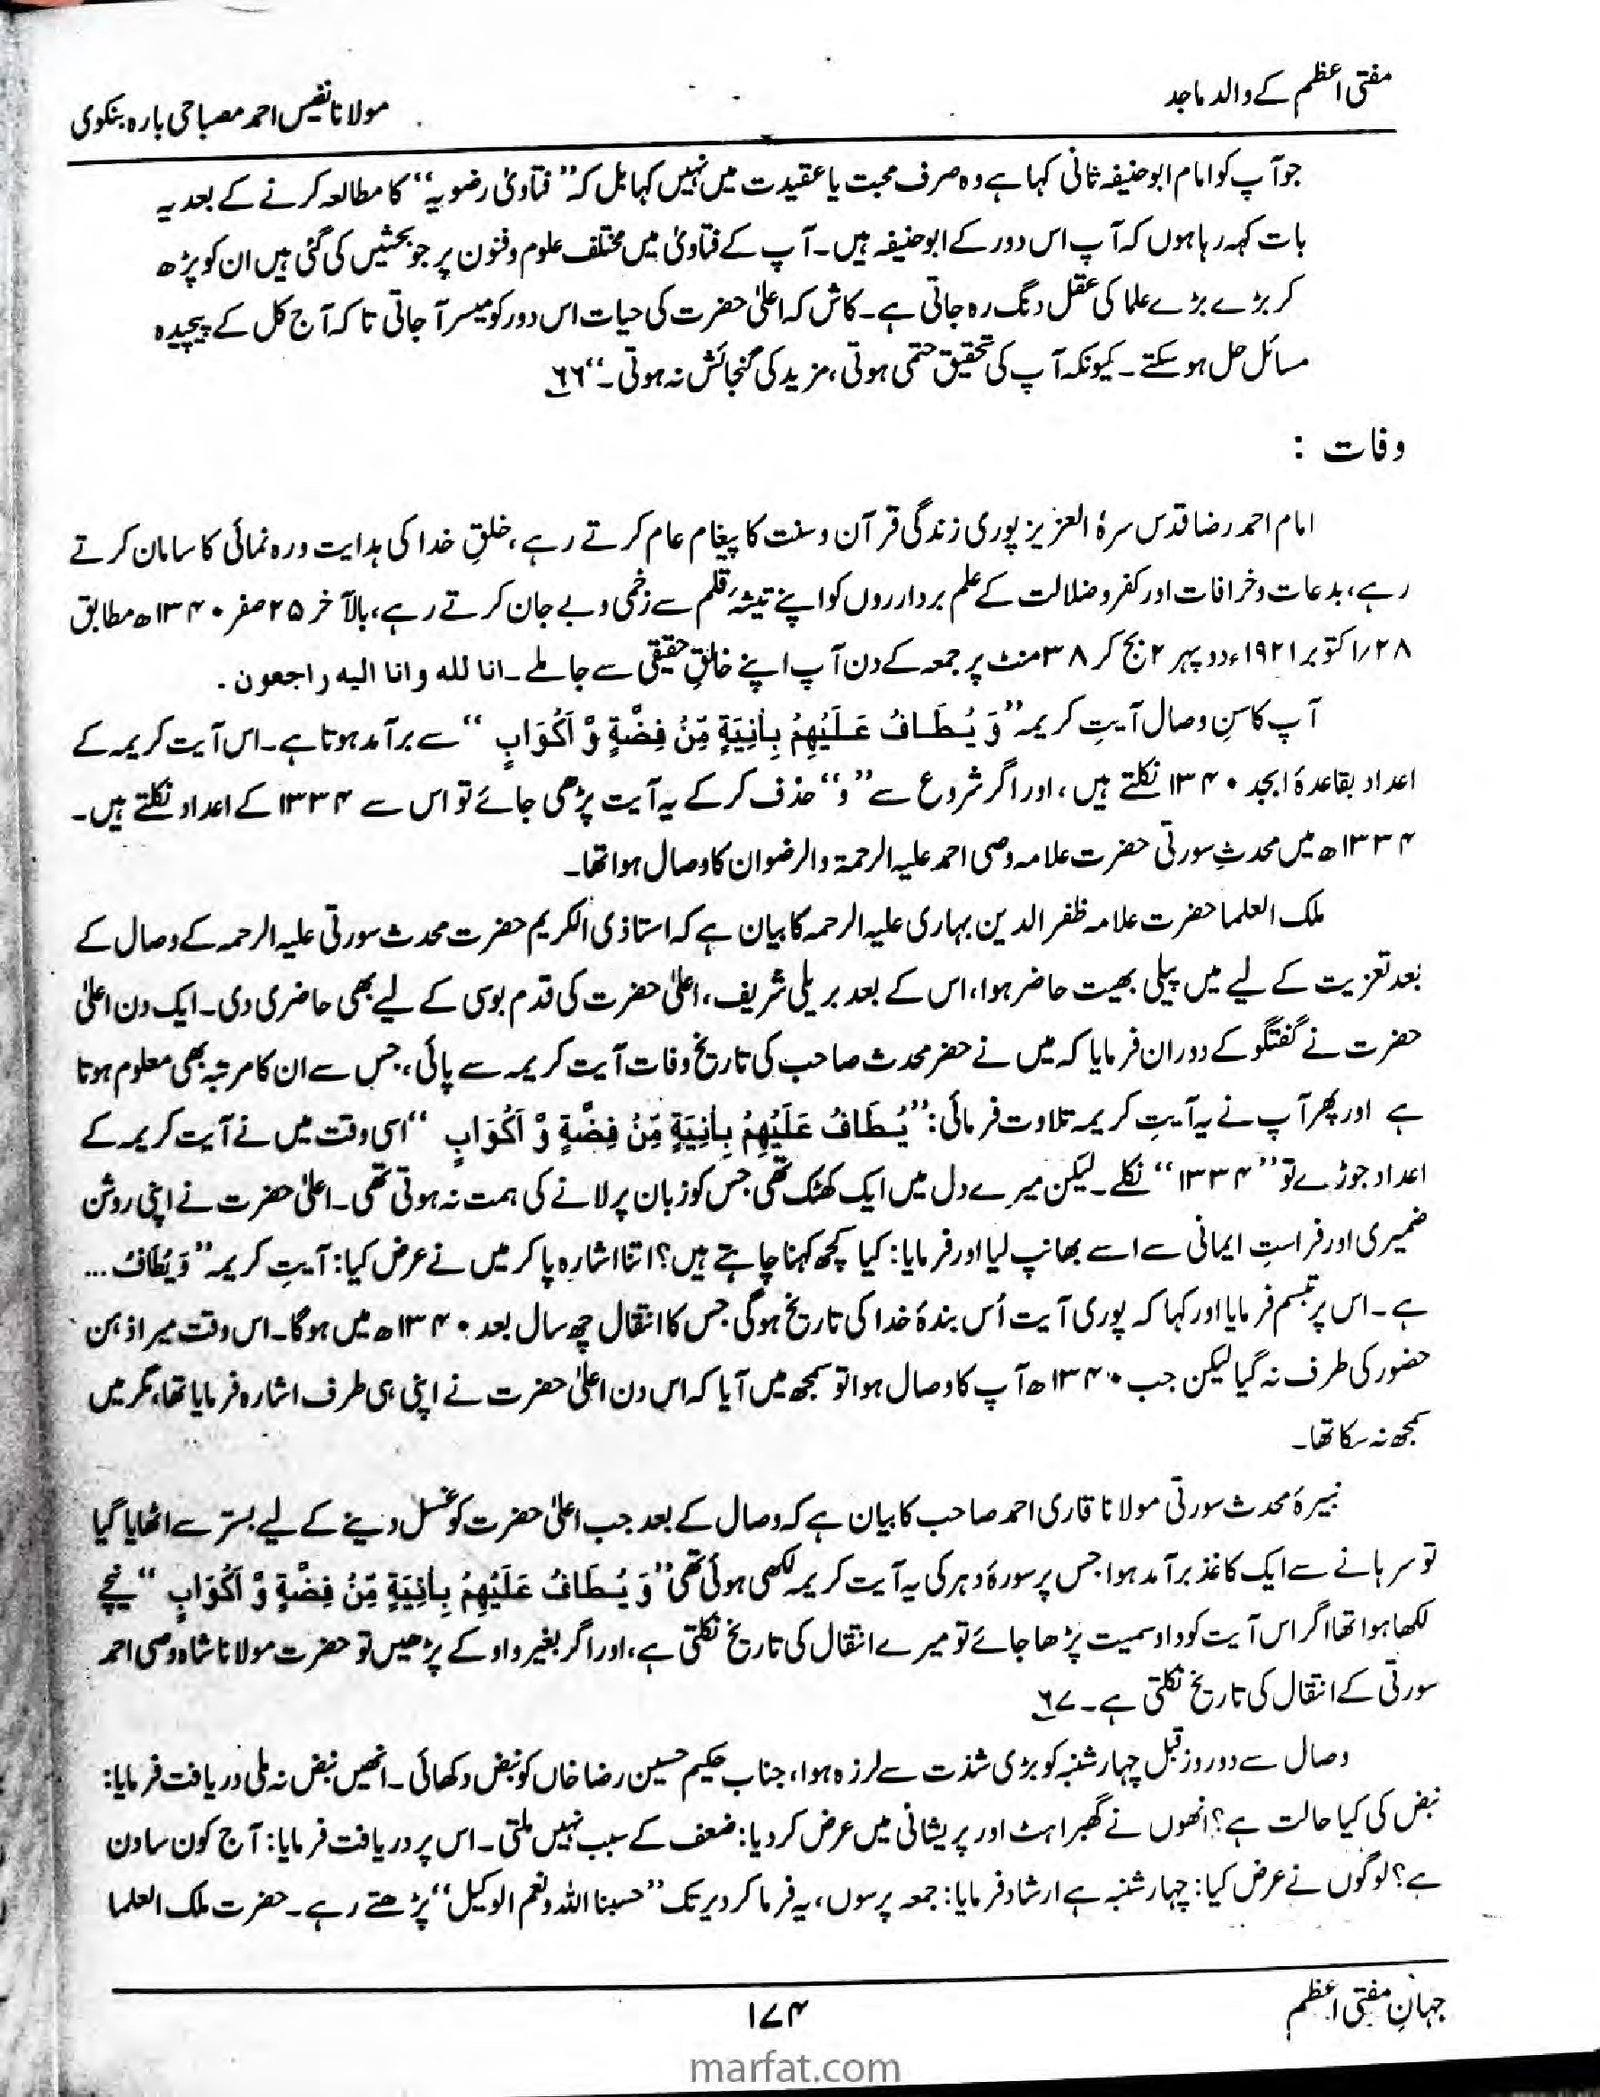 مفتی اعظم کے والد ماجد
مولانا نفیس احمد مصباحی بارہ بنکوی
جو آپ کو امام ابو حنیفہ ثانی کہا ہے وہ صرف محبت یا عقیدت میں نہیں کہا بل کہ ”فتاویٰ رضویہ“ کا مطالعہ کرنے کے بعد یہ
بات کہہ رہا ہوں کہ آپ اس دور کے ابو حنیفہ ہیں۔ آپ کے فتاویٰ میں مختلف علوم و فنون پر جو بحثیں کی گئی ہیں ان کو پڑھ
کر بڑے بڑے علما کی عقل دنگ رہ جاتی ہے۔ کاش کہ اعلیٰ حضرت کی حیات اس دور کو میسر آ جاتی تا کہ آج کل کے پیچیدہ
مسائل حل ہو سکتے۔ کیونکہ آپ کی تحقیق حتمی ہوتی، مزید کی گنجائش نہ ہوتی۔“ ۶۶
وفات :
امام احمد رضا قدس سرہٗ العزیز پوری زندگی قرآن و سنت کا پیغام عام کرتے رہے، خلقِ خدا کی ہدایت و رہ نمائی کا سامان کرتے
رہے، بدعات و خرافات اور کفر و ضلالت کے علم برداروں کو اپنے تیشۂ قلم سے زخمی و بے جان کرتے رہے، بالآخر ۲۵ صفر ۱۳۴۰ھ مطابق
۲۸؍اکتوبر ۱۹۲۱ء دوپہر ۲ بج کر ۳۸ منٹ پر جمعہ کے دن آپ اپنے خالقِ حقیقی سے جا ملے۔ انا لله و انا اليه راجعون۔
آپ کا سنِ وصال آیتِ کریمہ ”وَ يُطَافُ عَلَيْهِمْ بِاٰنِيَةٍ مِّنْ فِضَّةٍ وَّ اَكْوَابٍ“ سے برآمد ہوتا ہے۔ اس آیت کریمہ کے
اعداد بقاعدۂ ابجد ۱۳۴۰ نکلتے ہیں، اور اگر شروع سے ”و“ حذف کر کے یہ آیت پڑھی جائے تو اس سے ۱۳۳۴ کے اعداد نکلتے ہیں۔
۱۳۳۴ھ میں محدثِ سورتی حضرت علامہ وصی احمد علیہ الرحمۃ والرضوان کا وصال ہوا تھا۔
ملک العلما حضرت علامہ ظفر الدین بہاری علیہ الرحمہ کا بیان ہے کہ استاذی الکریم حضرت محدث سورتی علیہ الرحمہ کے وصال کے
بعد تعزیت کے لیے میں پیلی بھیت حاضر ہوا، اس کے بعد بریلی شریف، اعلیٰ حضرت کی قدم بوسی کے لیے بھی حاضری دی۔ ایک دن اعلیٰ
حضرت نے گفتگو کے دوران فرمایا کہ میں نے حضر محدث صاحب کی تاریخ وفات آیت کریمہ سے پائی، جس سے ان کا مرتبہ بھی معلوم ہوتا
ہے اور پھر آپ نے یہ آیتِ کریمہ تلاوت فرمائی: ”يُطَافُ عَلَيْهِمْ بِاٰنِيَةٍ مِّنْ فِضَّةٍ وَّ اَكْوَابٍ“ اسی وقت میں نے آیت کریمہ کے
اعداد جوڑے تو ”۱۳۳۴“ نکلے۔ لیکن میرے دل میں ایک کھٹک تھی جس کو زبان پر لانے کی ہمت نہ ہوتی تھی۔ اعلیٰ حضرت نے اپنی روشن
ضمیری اور فراستِ ایمانی سے اسے بھانپ لیا اور فرمایا: کیا کچھ کہنا چاہتے ہیں؟ اتنا اشارہ پا کر میں نے عرض کیا: آیتِ کریمہ ”وَيُطَافُ...
ہے۔ اس پر تبسم فرمایا اور کہا کہ پوری آیت اُس بندۂ خدا کی تاریخ ہوگی جس کا انتقال چھ سال بعد ۱۳۴۰ھ میں ہوگا۔ اس وقت میرا ذہن
حضور کی طرف نہ گیا لیکن جب ۱۳۴۰ھ آپ کا وصال ہوا تو سمجھ میں آیا کہ اس دن اعلیٰ حضرت نے اپنی ہی طرف اشارہ فرمایا تھا، مگر میں
سمجھ نہ سکا تھا۔
نبیرۂ محدث سورتی مولانا قاری احمد صاحب کا بیان ہے کہ وصال کے بعد جب اعلیٰ حضرت کو غسل دینے کے لیے بستر سے اٹھایا گیا
تو سرہانے سے ایک کاغذ برآمد ہوا جس پر سورۂ دہر کی یہ آیت کریمہ لکھی ہوئی تھی ”وَ يُطَافُ عَلَيْهِمْ بِاٰنِيَةٍ مِّنْ فِضَّةٍ وَّ اَكْوَابٍ“ نیچے
لکھا ہوا تھا اگر اس آیت کو واو سمیت پڑھا جائے تو میرے انتقال کی تاریخ نکلتی ہے، اور اگر بغیر واو کے پڑھیں تو حضرت مولانا شاہ وصی احمد
سورتی کے انتقال کی تاریخ نکلتی ہے۔ ۶۷
وصال سے دو روز قبل چہار شنبہ کو بڑی شدّت سے لرزہ ہوا، جناب حکیم حسین رضا خاں کو نبض دکھائی۔ انھیں نبض نہ ملی دریافت فرمایا:
نبض کی کیا حالت ہے؟ انھوں نے گھبراہٹ اور پریشانی میں عرض کر دیا: ضعف کے سبب نہیں ملتی۔ اس پر دریافت فرمایا: آج کون سا دن
ہے؟ لوگوں نے عرض کیا: چہار شنبہ ہے ارشاد فرمایا: جمعہ پرسوں، یہ فرما کر دیر تک ”حسبنا اللہ و نعم الوکیل“ پڑھتے رہے۔ حضرت ملک العلما
جہانِ مفتی اعظم
۱۷۴
marfat.com